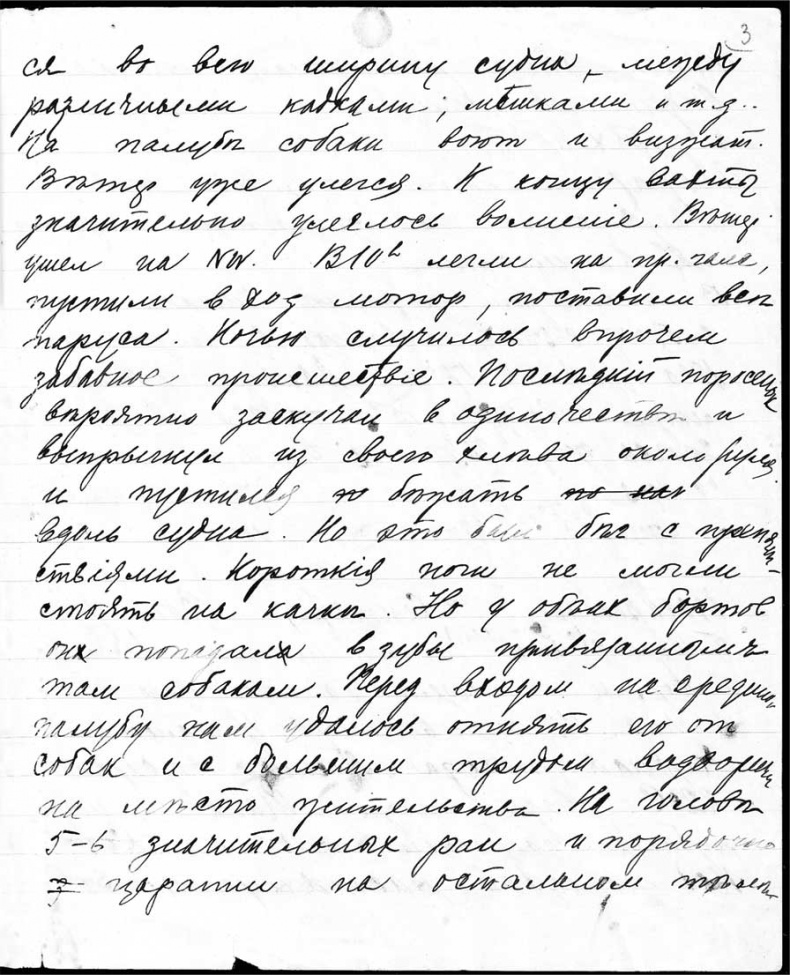 3
ся во всю ширину судна, между
различными кадками, мѣшками и т.д..
На палубѣ собаки воют и визжат.
Вѣтер уже улегся. К концу вахты
значительно улеглось волненіе. Вѣтер
ушел на NW. В 10h легли на пр. галс,
пустили в ход мотор, поставили всѣ
паруса. Ночью случилось впрочем
забавное происшествіе. Послѣдній поросенок
вѣроятно заскучал в одиночествѣ и
выпрыгнул из своего хлѣва около
и пустился бѣжать
вдоль судна. Но это был бѣг с препят-
ствіями. Короткія ноги не могли
стоять на качкѣ. Но у обоих бортов
он попадал в зубы привязанным
там собакам. Перед входом на среднюю
палубу нам удалось отнять его от
собак и с большим трудом водворить
на мѣсто жительства. На головѣ
5-6 значительных ран и порядочно
царапин на остальном тѣлѣ.